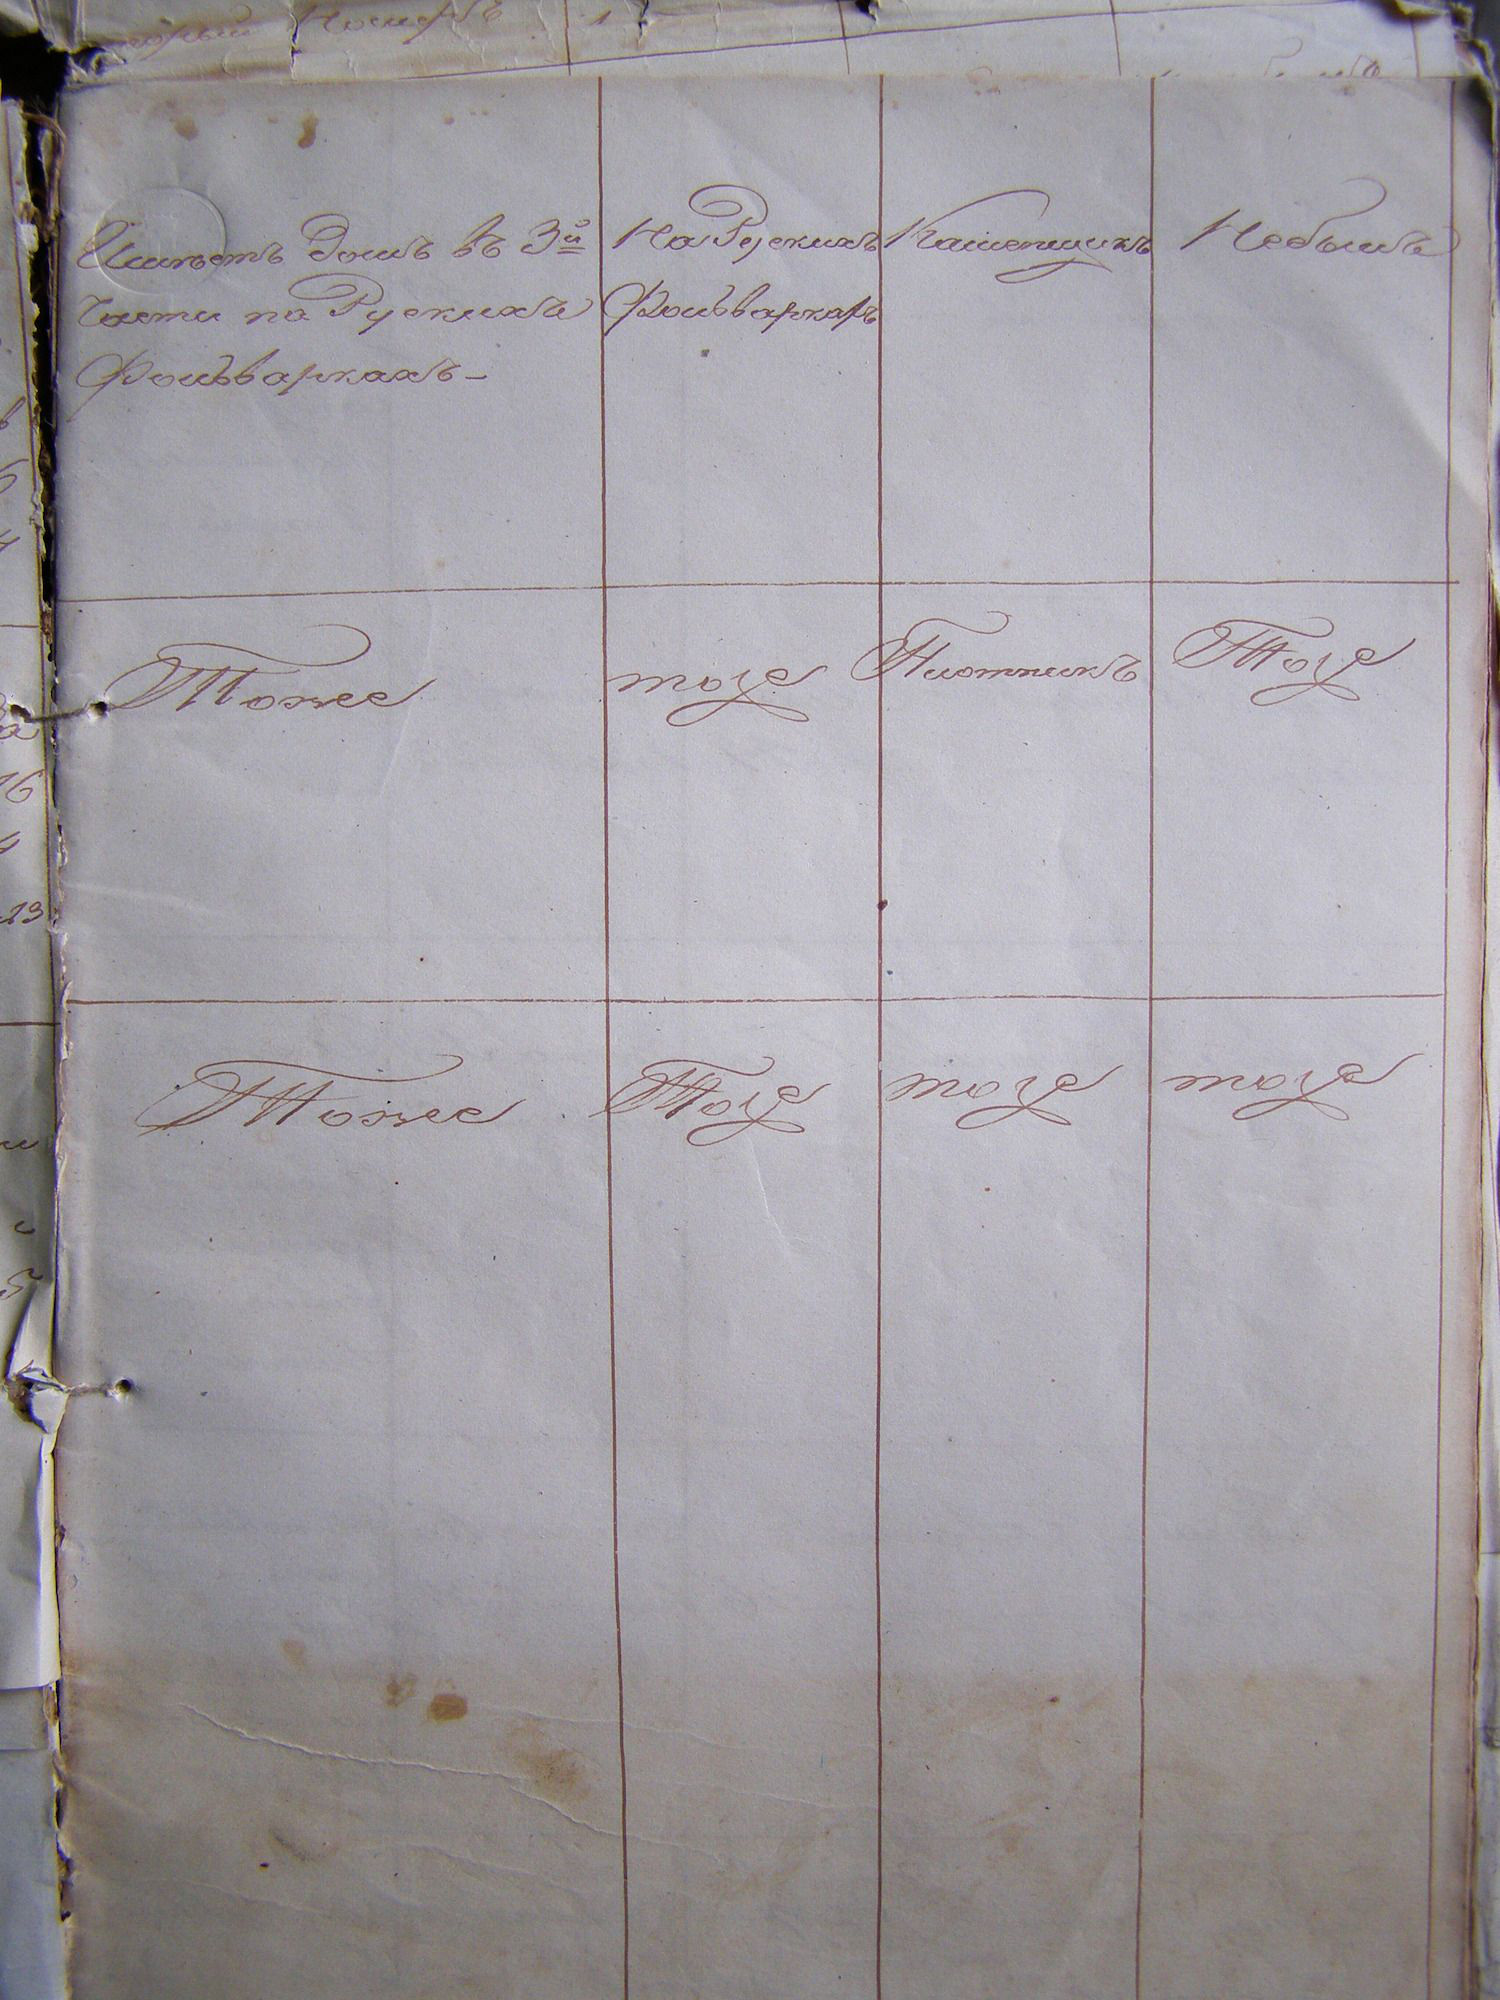 Имѣетъ домъ въ 3й
части на Рускихъ
Фольваркахъ –
На Рускихъ
Фольваркахъ
Каменщикъ
Небылъ
Тоже
тоже
Плотникъ
Тоже
Тоже
Тоже
тоже
тоже